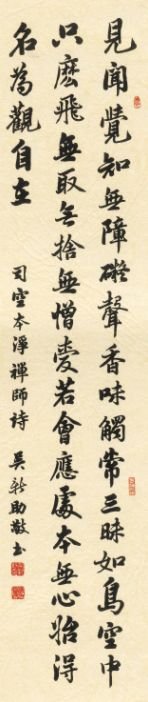 見聞覺知無障礙聲香味觸常三昧如鳥空中
只麼飛無取無捨無憎愛若會應處本無心始得
名為觀自在
司空本淨禪師詩 吳新助敬書